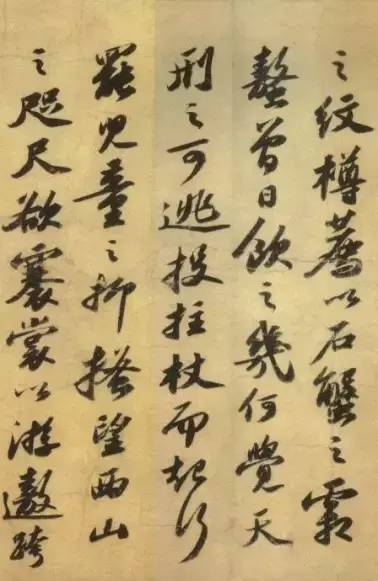 之纹樽荐以石蟹之霜
螯曾日饮之几何觉天
刑之可逃投拄杖而起行
罢儿童之抑搔望西山
之咫尺欲褰裳以游遨跨